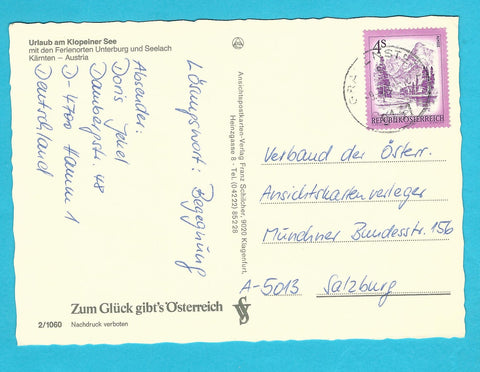 Urlaub am Klopeiner See
mit den Ferienorten Unterburg und Seelach
Kärnten – Austria
Lösungswort: Begegnung
Absender:
Doris
Dambergstr. 48
D-4700 Hamm 1
Deutschland
Zum Glück gibt's Österreich
2/1060 Nachdruck verboten
Ansichtspostkarten-Verlag Franz Schilcher, 9020 Klagenfurt,
Heinzgasse 8 - Tel. (04222) 85228
4S
REPUBLIK ÖSTERREICH
Verband der Österr.
Ansichtskartenverleger
Münchner Bundesstr. 156
A-5013 Salzburg